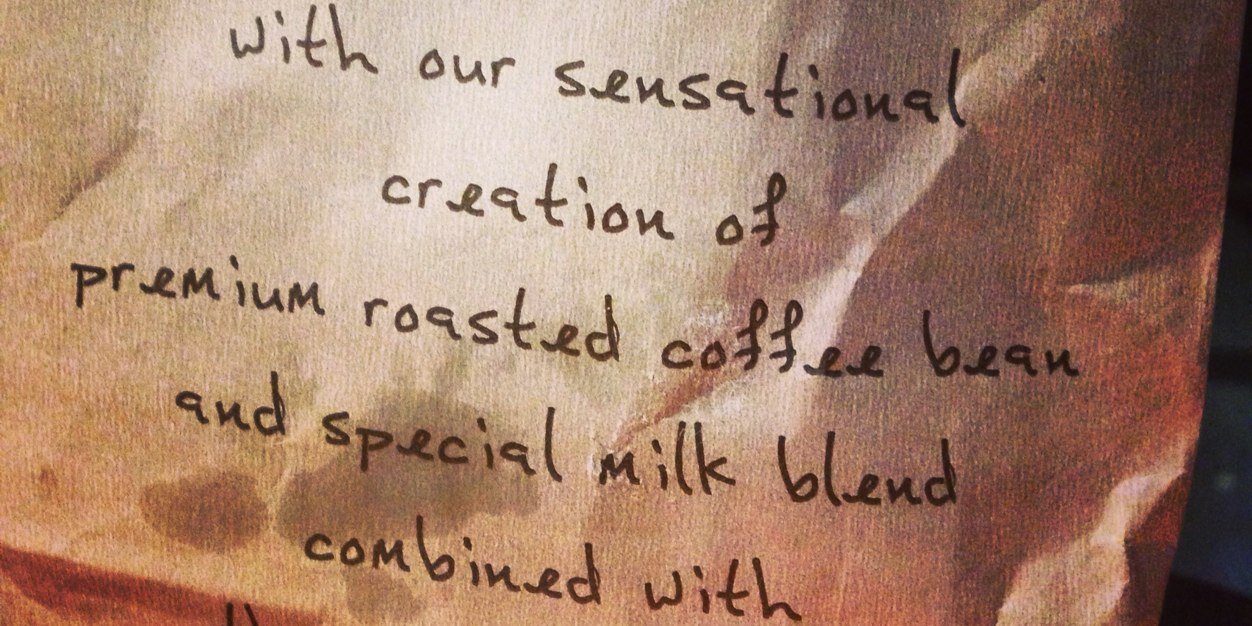 with our sensational
creation of
premium roasted coffee bean
and special milk blend
combined with